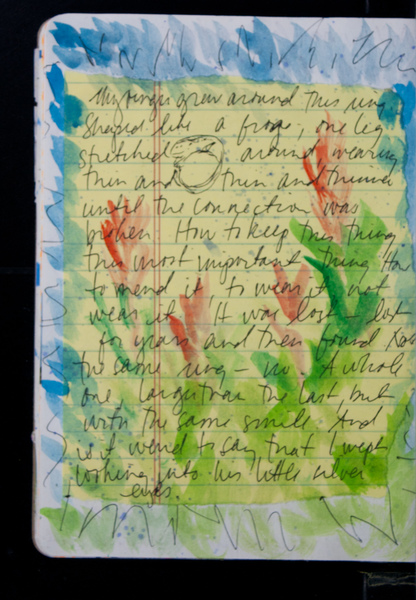 My finger grew around this ring
Shaped like a frog, one leg
stretched around wearing
thin and thin and thinner
until the connection was
broken. How to keep this thing
this most important thing How
to mend it to wear it not
wear it. It was lost - lost
for years and then found Not
the same ring - no. A whole
one, larger than the last, but
with the same smile. And
is it weird to say that I wept
looking into his little silver
eyes.